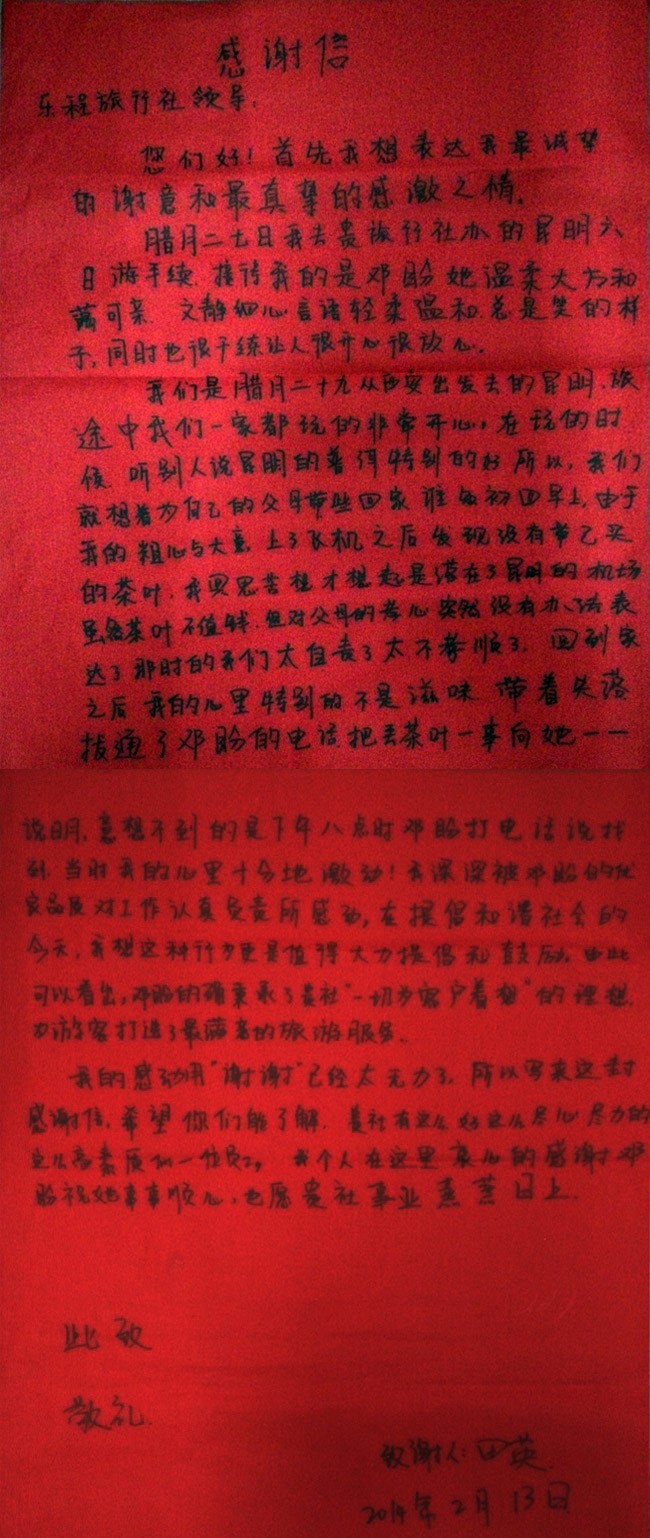 感谢信
乐程旅行社领导:
您们好!首先我想表达我最诚挚
的谢意和最真挚的感激之情。
腊月二七日我去贵旅行社办的昆明六
日游手续.接待我的是邓盼她温柔大方和
蔼可亲.文静细心言语轻柔温和.总是笑的样
子,同时也很干练让人很开心很放心。
我们是腊月二十九从西安出发去的昆明.旅
途中我们一家都玩的非常开心。在玩的时
候.听别人说昆明的普洱特别的好所以,我们
就想着为自己的父母带些回家.谁知初四早上,由于
我的粗心与大意,上了飞机之后发现没有带已买
的茶叶.我冥思苦想才想起是落在了昆明的机场
虽然茶叶不值钱.但对父母的孝心突然没有办法表
达了那时的我们太自责了太不孝顺了.回到家
之后我的心里特别的不是滋味.带着失落
拔通了邓盼的电话.把丢茶叶一事向她一一
说明,意想不到的是下午八点时邓盼打电话说找
到.当时我的心里十分地激动!我深深被邓盼的优
良品质对工作认真负责所感动,在提倡和谐社会的
今天,我想这种行为更是值得大力提倡和鼓励。由此
可以看出,邓盼的确秉承了贵社"一切为客户着想"的理想.
为游客打造了最满意的旅游服务。
我的感动用"谢谢"已经太无力了,所以写来这封
感谢信,希望你们能了解.贵社有这么好这么尽心尽力的
这么高素质的一位员工。我个人在这里衷心的感谢邓
盼祝她事事顺心,也愿贵社事业蒸蒸日上.
此致
敬礼.
致谢人:田英
2014年2月13日